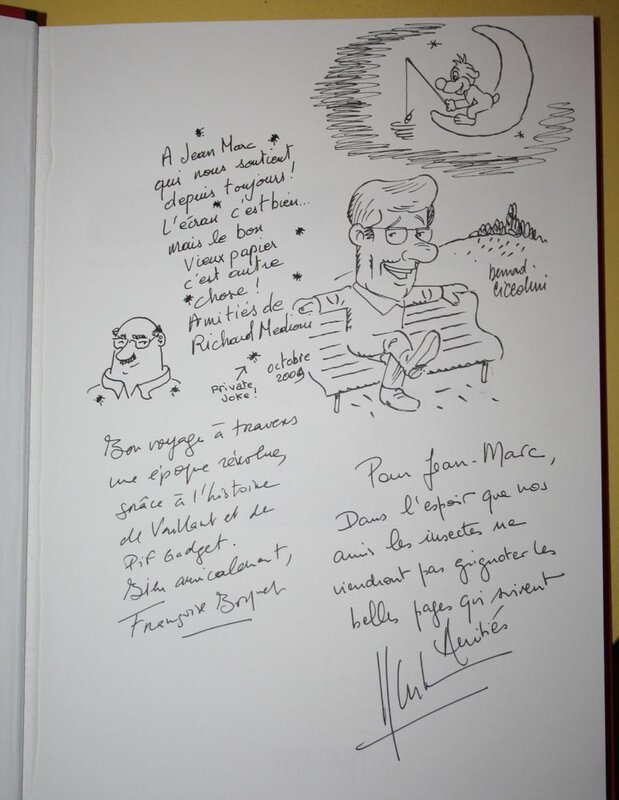 A Jean Marc
qui nous soutient
depuis toujours !
L'écran c'est bien...
mais le bon
Vieux papier
c'est autre
chose !
Amitiés de
Richard Medioni
Private
joke !
octobre
2009
bernard
ciccolini
Bon voyage à travers
une époque révolue,
grâce à l'histoire
de Vaillant et de
Pif Gadget.
Bien amicalement,
Françoise Bosquet
Pour Jean-Marc,
Dans l'espoir que nos
amis les insectes ne
viendront pas grignoter les
belles pages qui suivent
Amitiés